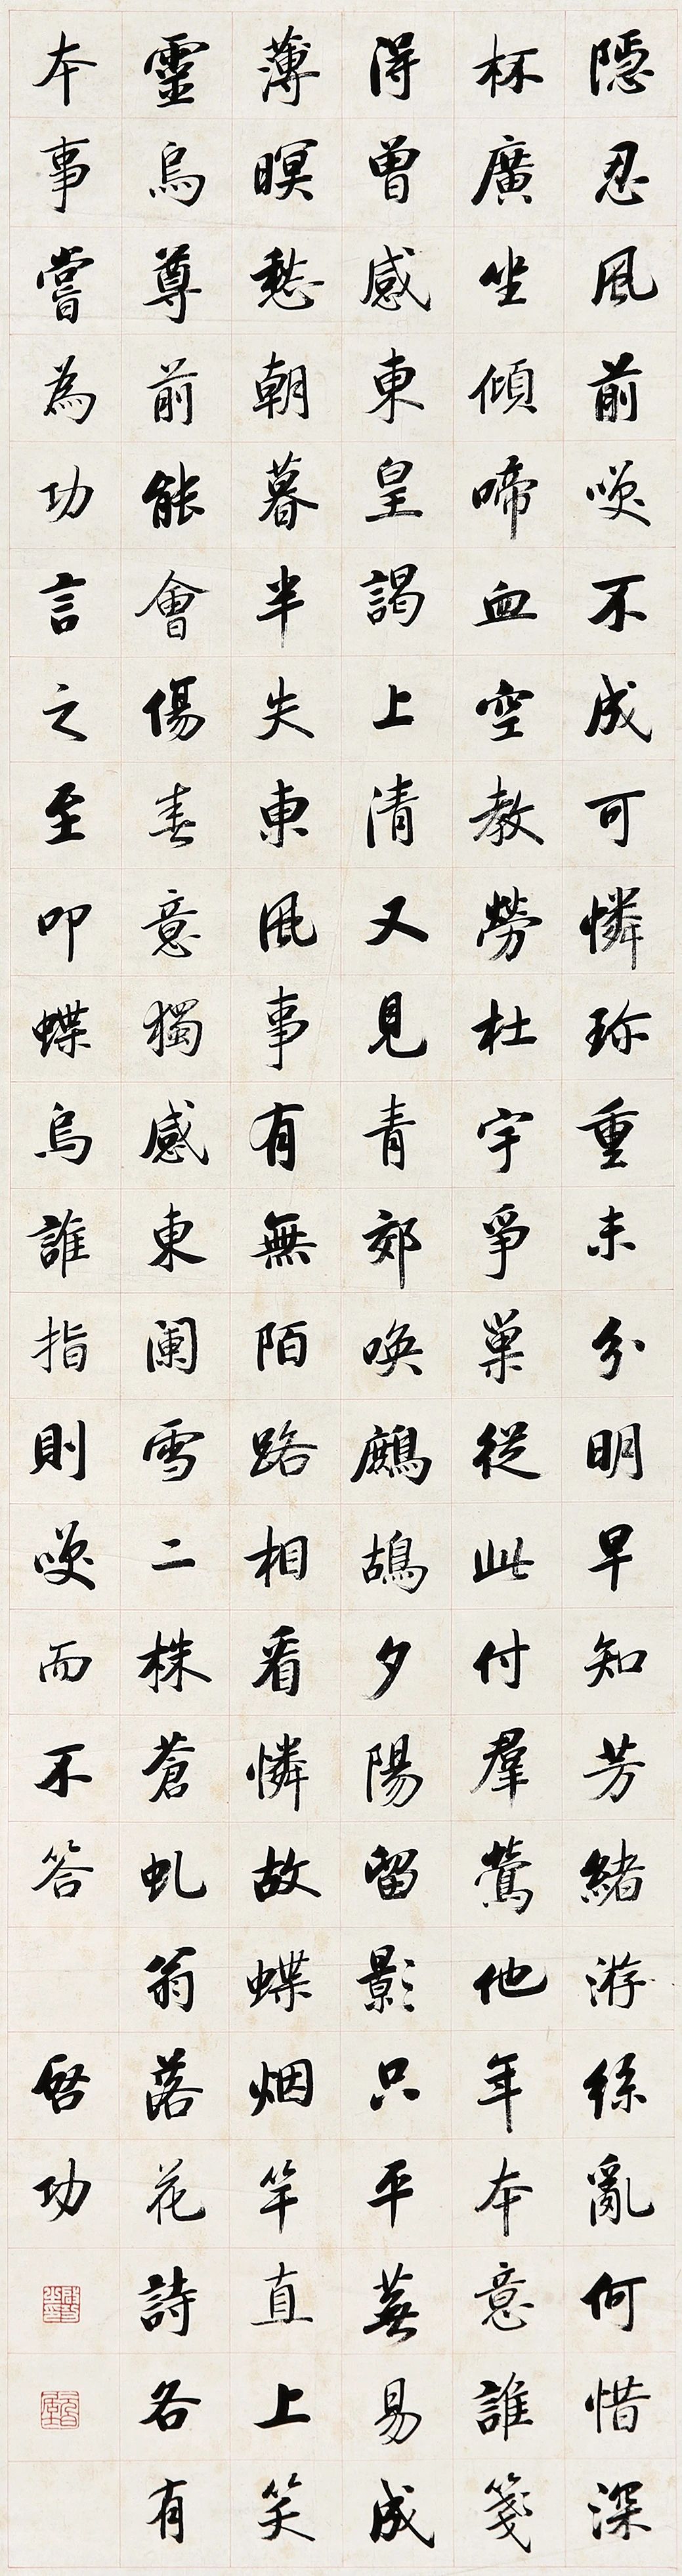 隱忍風前唉不成可憐珎重未分明早知芳緒游絲亂何惜深
杯廣坐傾啼血空教勞杜宇爭巢從此付羣鶯他年本意誰箋
得曾感東皇謁上清又見青郊喚鷓鴣夕陽留影只平蕪易成
薄暝愁朝暮半失東風事有無陌路相看憐故蝶烟竿直上笑
靈烏尊前能會傷春意獨感東闌雪二株蒼虬翁落花詩各有
本事嘗為功言之至叩蝶烏誰指則唉而不答
啓功